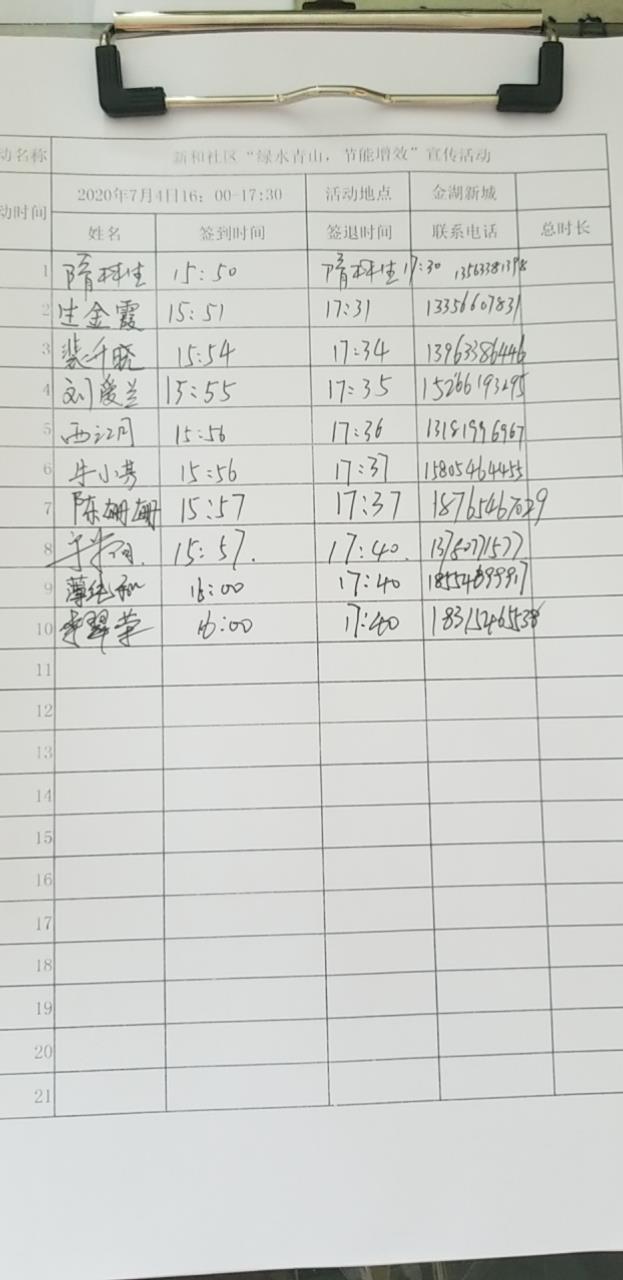 动名称 新和社区“绿水青山，节能增效”宣传活动
动时间 2020年7月4日16：00-17:30 活动地点 金湖新城
姓名 签到时间 签退时间 联系电话 总时长
1 隋科生 15:50 隋科生 17:30 13563381398
2 生金霞 15:51 17:31 13356607831
3 裴千晓 15:54 17:34 13963386446
4 刘爱兰 15:55 17:35 15266193295
5 西江月 15:56 17:36 13181996967
6 牛小芳 15:56 17:37 15805464455
7 陈姗姗 15:57 17:37 18765467029
8 15:57. 17:40. 13780771577
9 16:00 17:40
10 李翠荣 16:00 17:40 18315465538
11
12
13
14
15
16
17
18
19
20
21